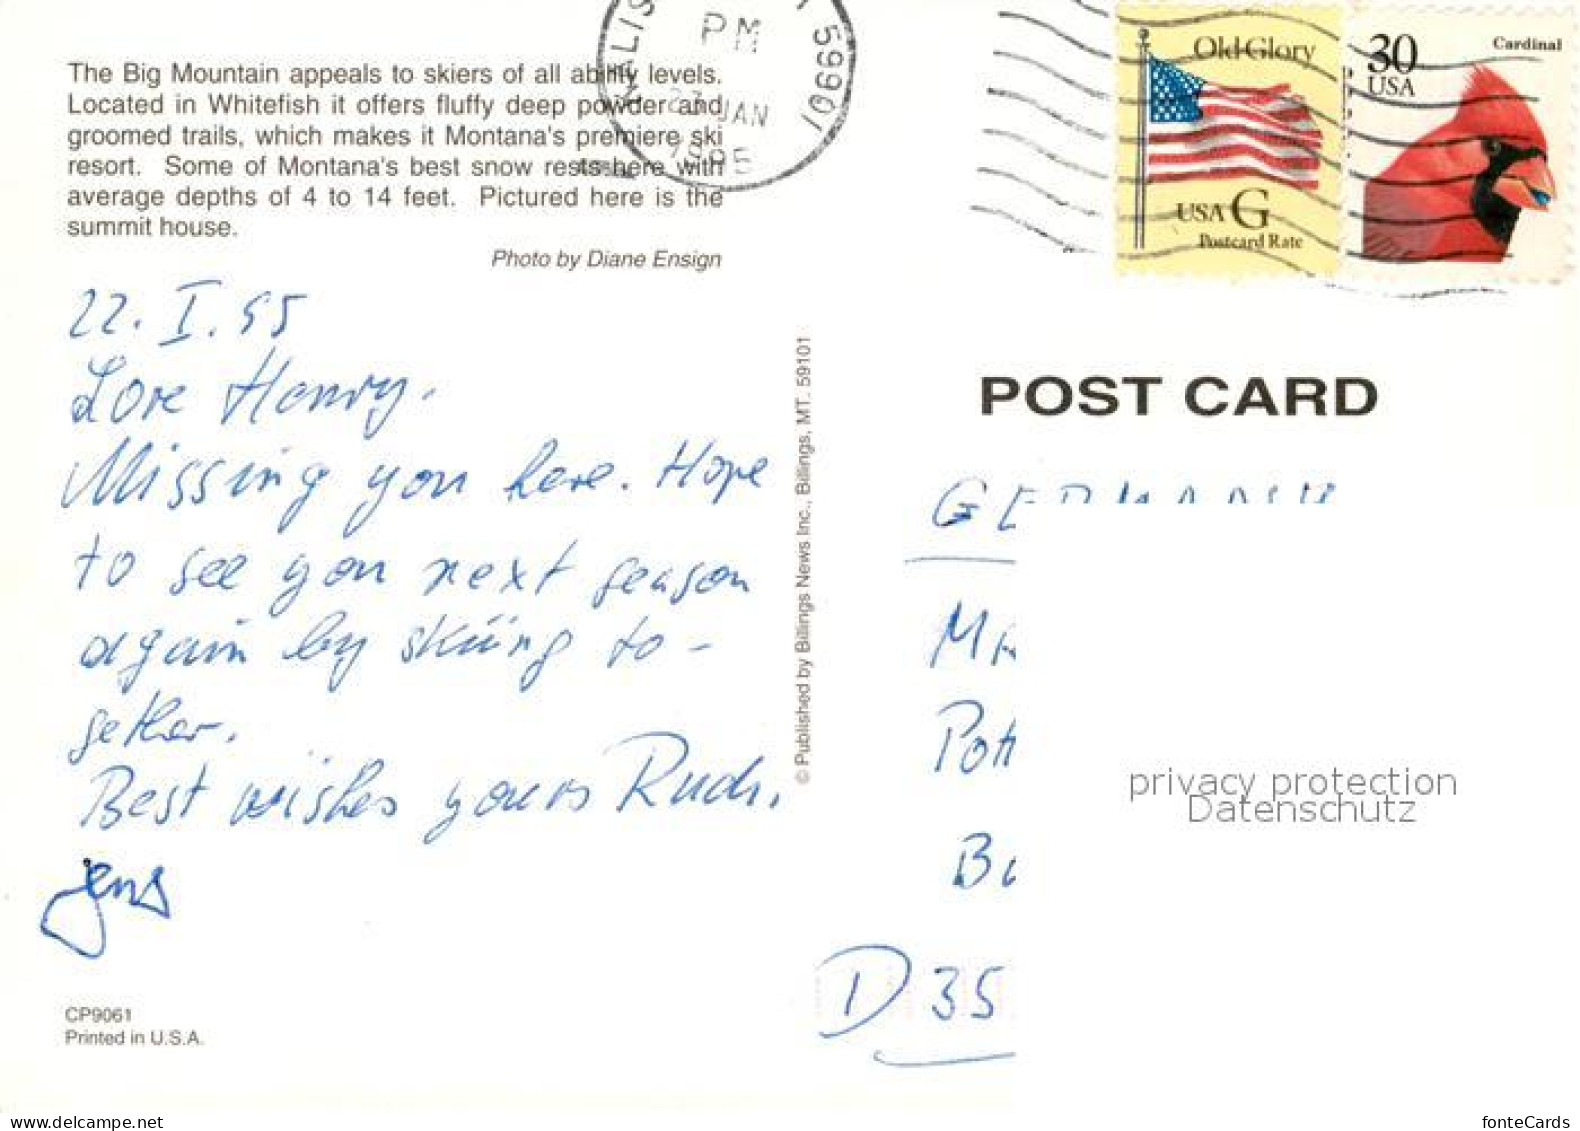 The Big Mountain appeals to skiers of all ability levels.
Located in Whitefish it offers fluffy deep powder and
groomed trails, which makes it Montana's premiere ski
resort. Some of Montana's best snow rests here with
average depths of 4 to 14 feet. Pictured here is the
summit house.
Photo by Diane Ensign
PM
23 JAN
1995
59901
Old Glory
USA G
Postcard Rate
30
USA
Cardinal
22. I. 95
Love Henry.
Missing you here. Hope
to see you next season
again by skiing to-
gether.
Best wishes yours Rudi,
Jens
CP9061
Printed in U.S.A.
© Published by Billings News Inc., Billings, MT. 59101
POST CARD
GERMANY
D 35
privacy protection
Datenschutz
www.delcampe.net
fonteCards